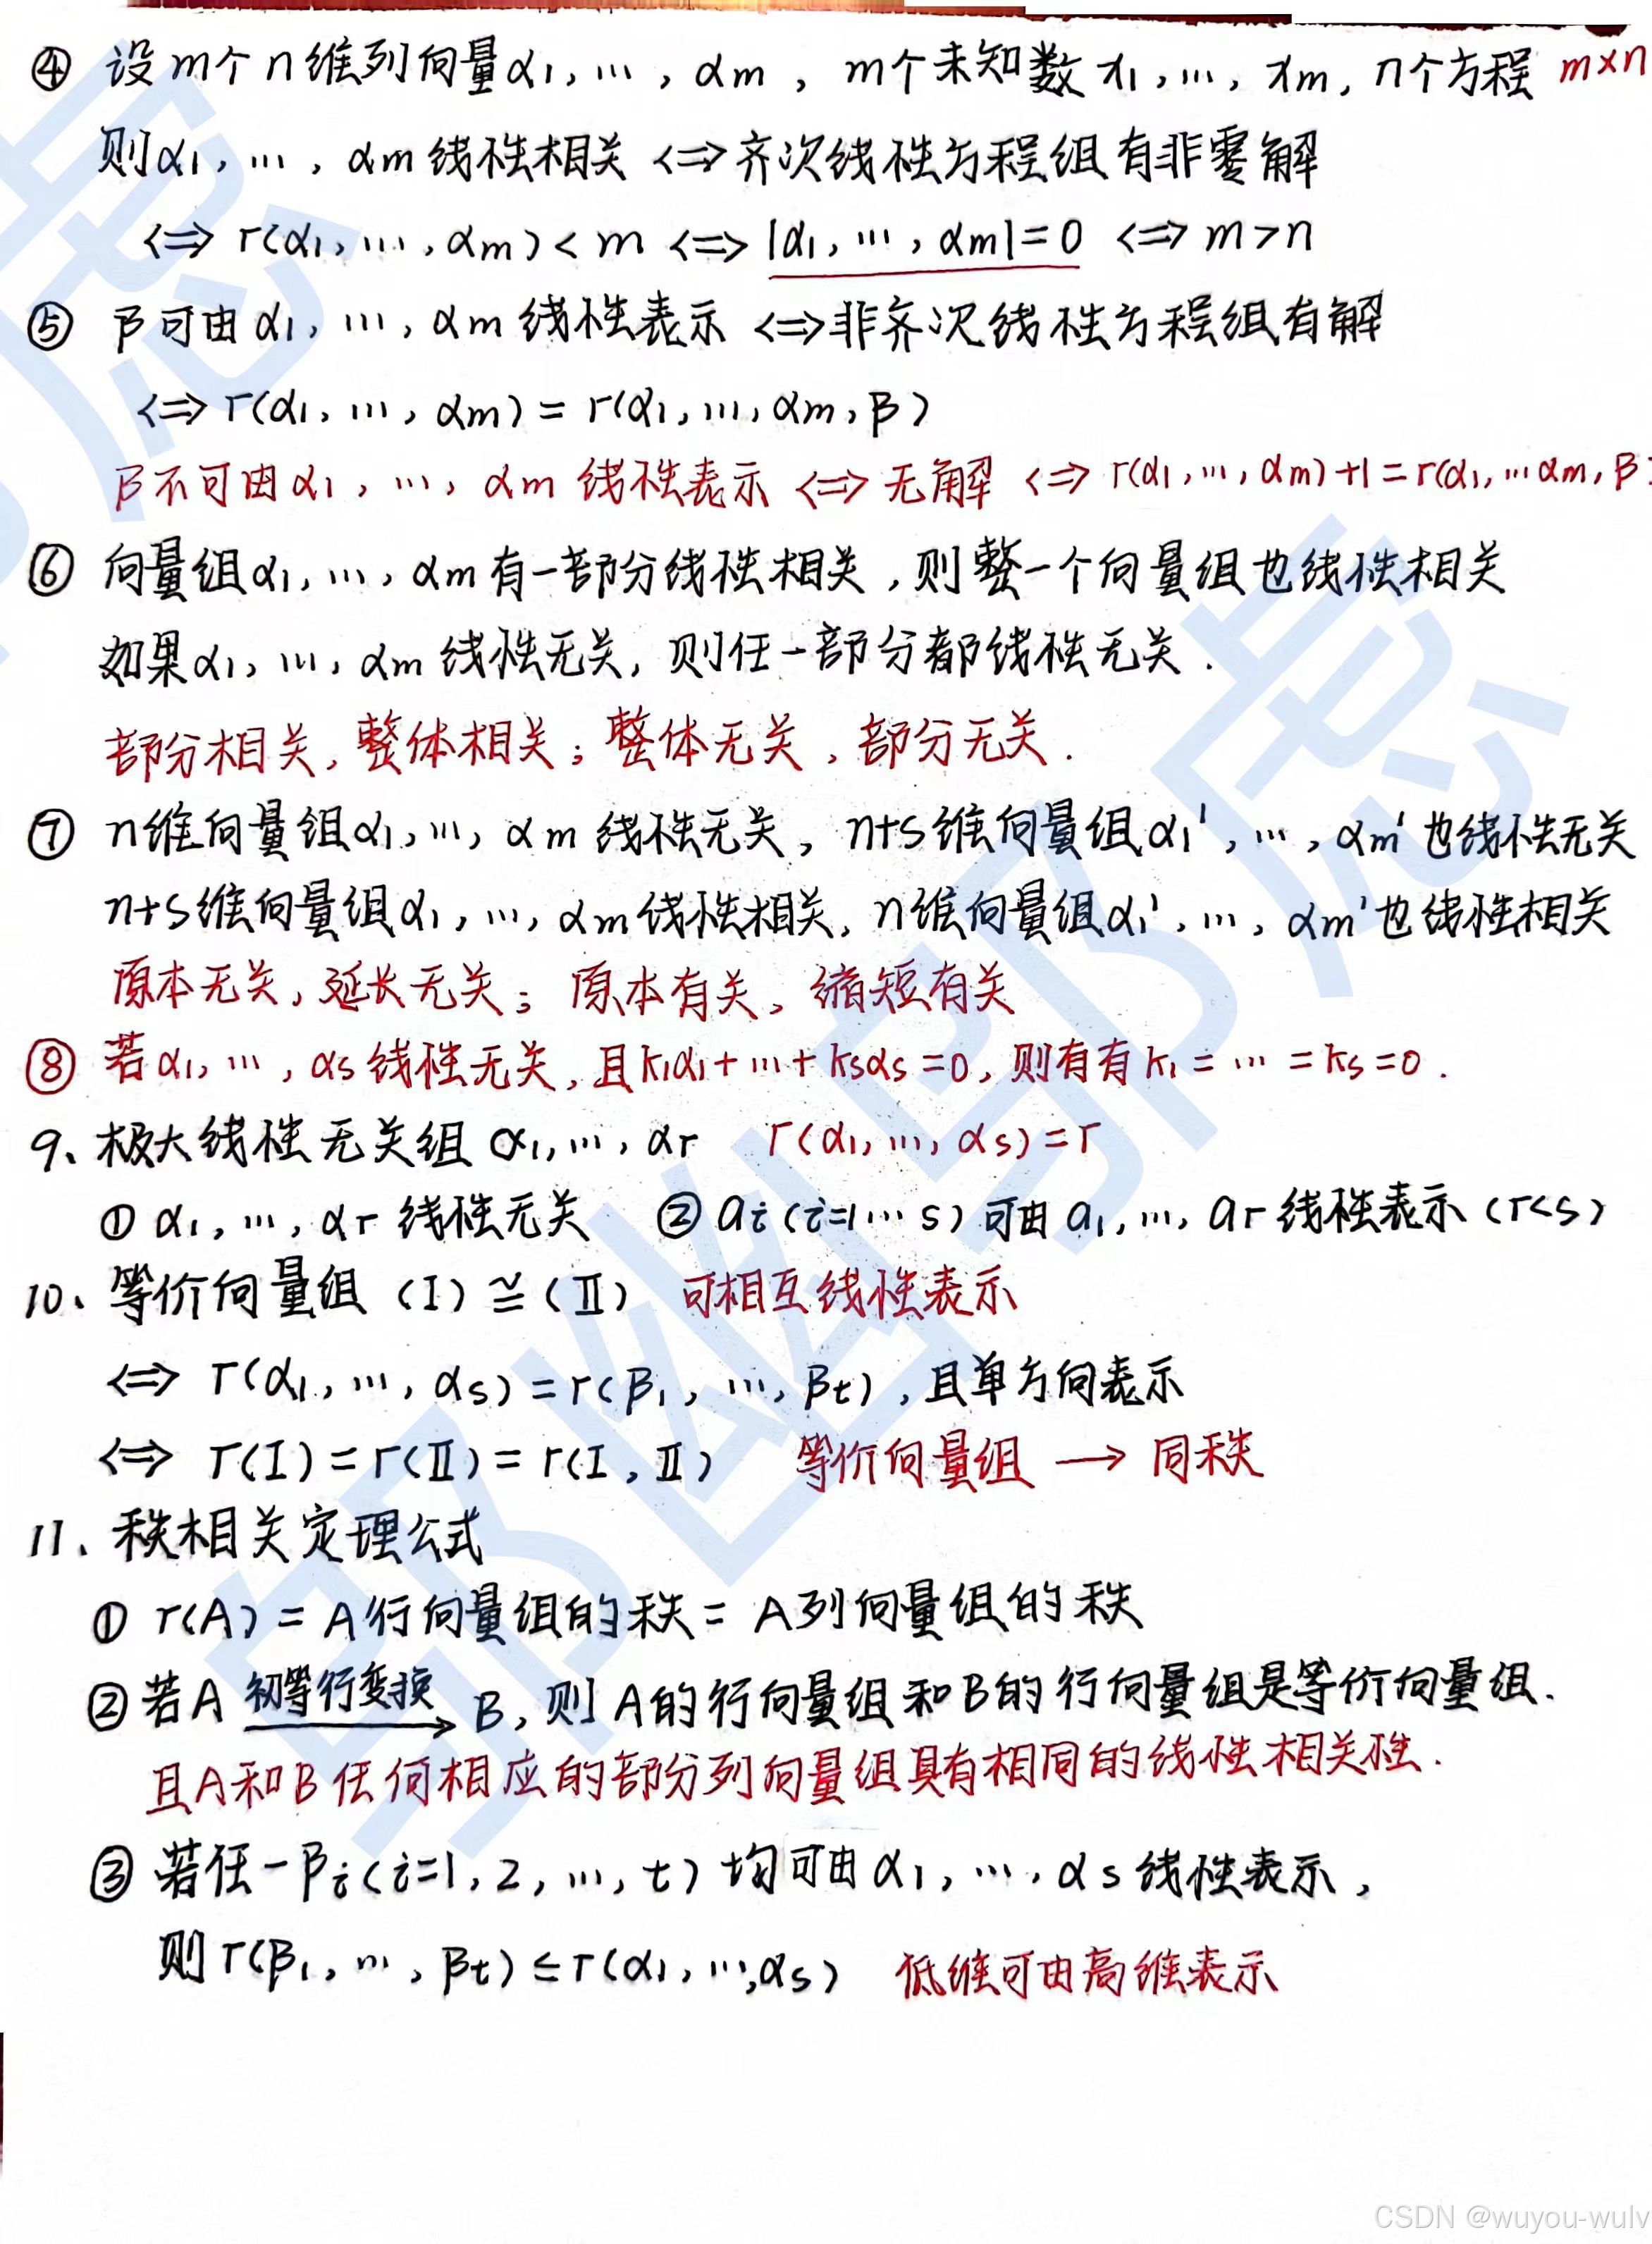 ④ 设m个n维列向量α1, …, αm, m个未知数x1, …, xm, n个方程 m×n
则α1, …, αm线性相关 <=> 齐次线性方程组有非零解
<=> r(α1, …, αm) < m <=> |α1, …, αm| = 0 <=> m > n
⑤ β可由α1, …, αm线性表示 <=> 非齐次线性方程组有解
<=> r(α1, …, αm) = r(α1, …, αm, β)
β不可由α1, …, αm线性表示 <=> 无解 <=> r(α1, …, αm)+1 = r(α1, …αm, β)
⑥ 向量组α1, …, αm有一部分线性相关, 则整一个向量组也线性相关
如果α1, …, αm线性无关, 则任一部分都线性无关.
部分相关, 整体相关; 整体无关, 部分无关.
⑦ n维向量组α1, …, αm线性无关, n+s维向量组α1', …, αm'也线性无关
n+s维向量组α1, …, αm线性相关, n维向量组α1', …, αm'也线性相关
原本无关, 延长无关; 原本有关, 缩短有关
⑧ 若α1, …, αs线性无关, 且k1α1+…+ksαs=0, 则有有k1=…=ks=0.
9、极大线性无关组 α1, …, αr r(α1, …, αs)=r
① α1, …, αr线性无关 ② ai(i=1…s)可由a1, …, ar线性表示(r<s)
10、等价向量组 (I)≅(II) 可相互线性表示
<=> r(α1, …, αs)=r(β1, …, βt), 且单方向表示
<=> r(I)=r(II)=r(I, II) 等价向量组 → 同秩
11、秩相关定理公式
① r(A) = A行向量组的秩 = A列向量组的秩
② 若A 初等行变换→ B, 则A的行向量组和B的行向量组是等价向量组.
且A和B任何相应的部分列向量组具有相同的线性相关性.
③ 若任一βi(i=1, 2, …, t)均可由α1, …, αs线性表示,
则r(β1, …, βt) ≤ r(α1, …, αs) 低维可由高维表示
CSDN @wuyou-wulv